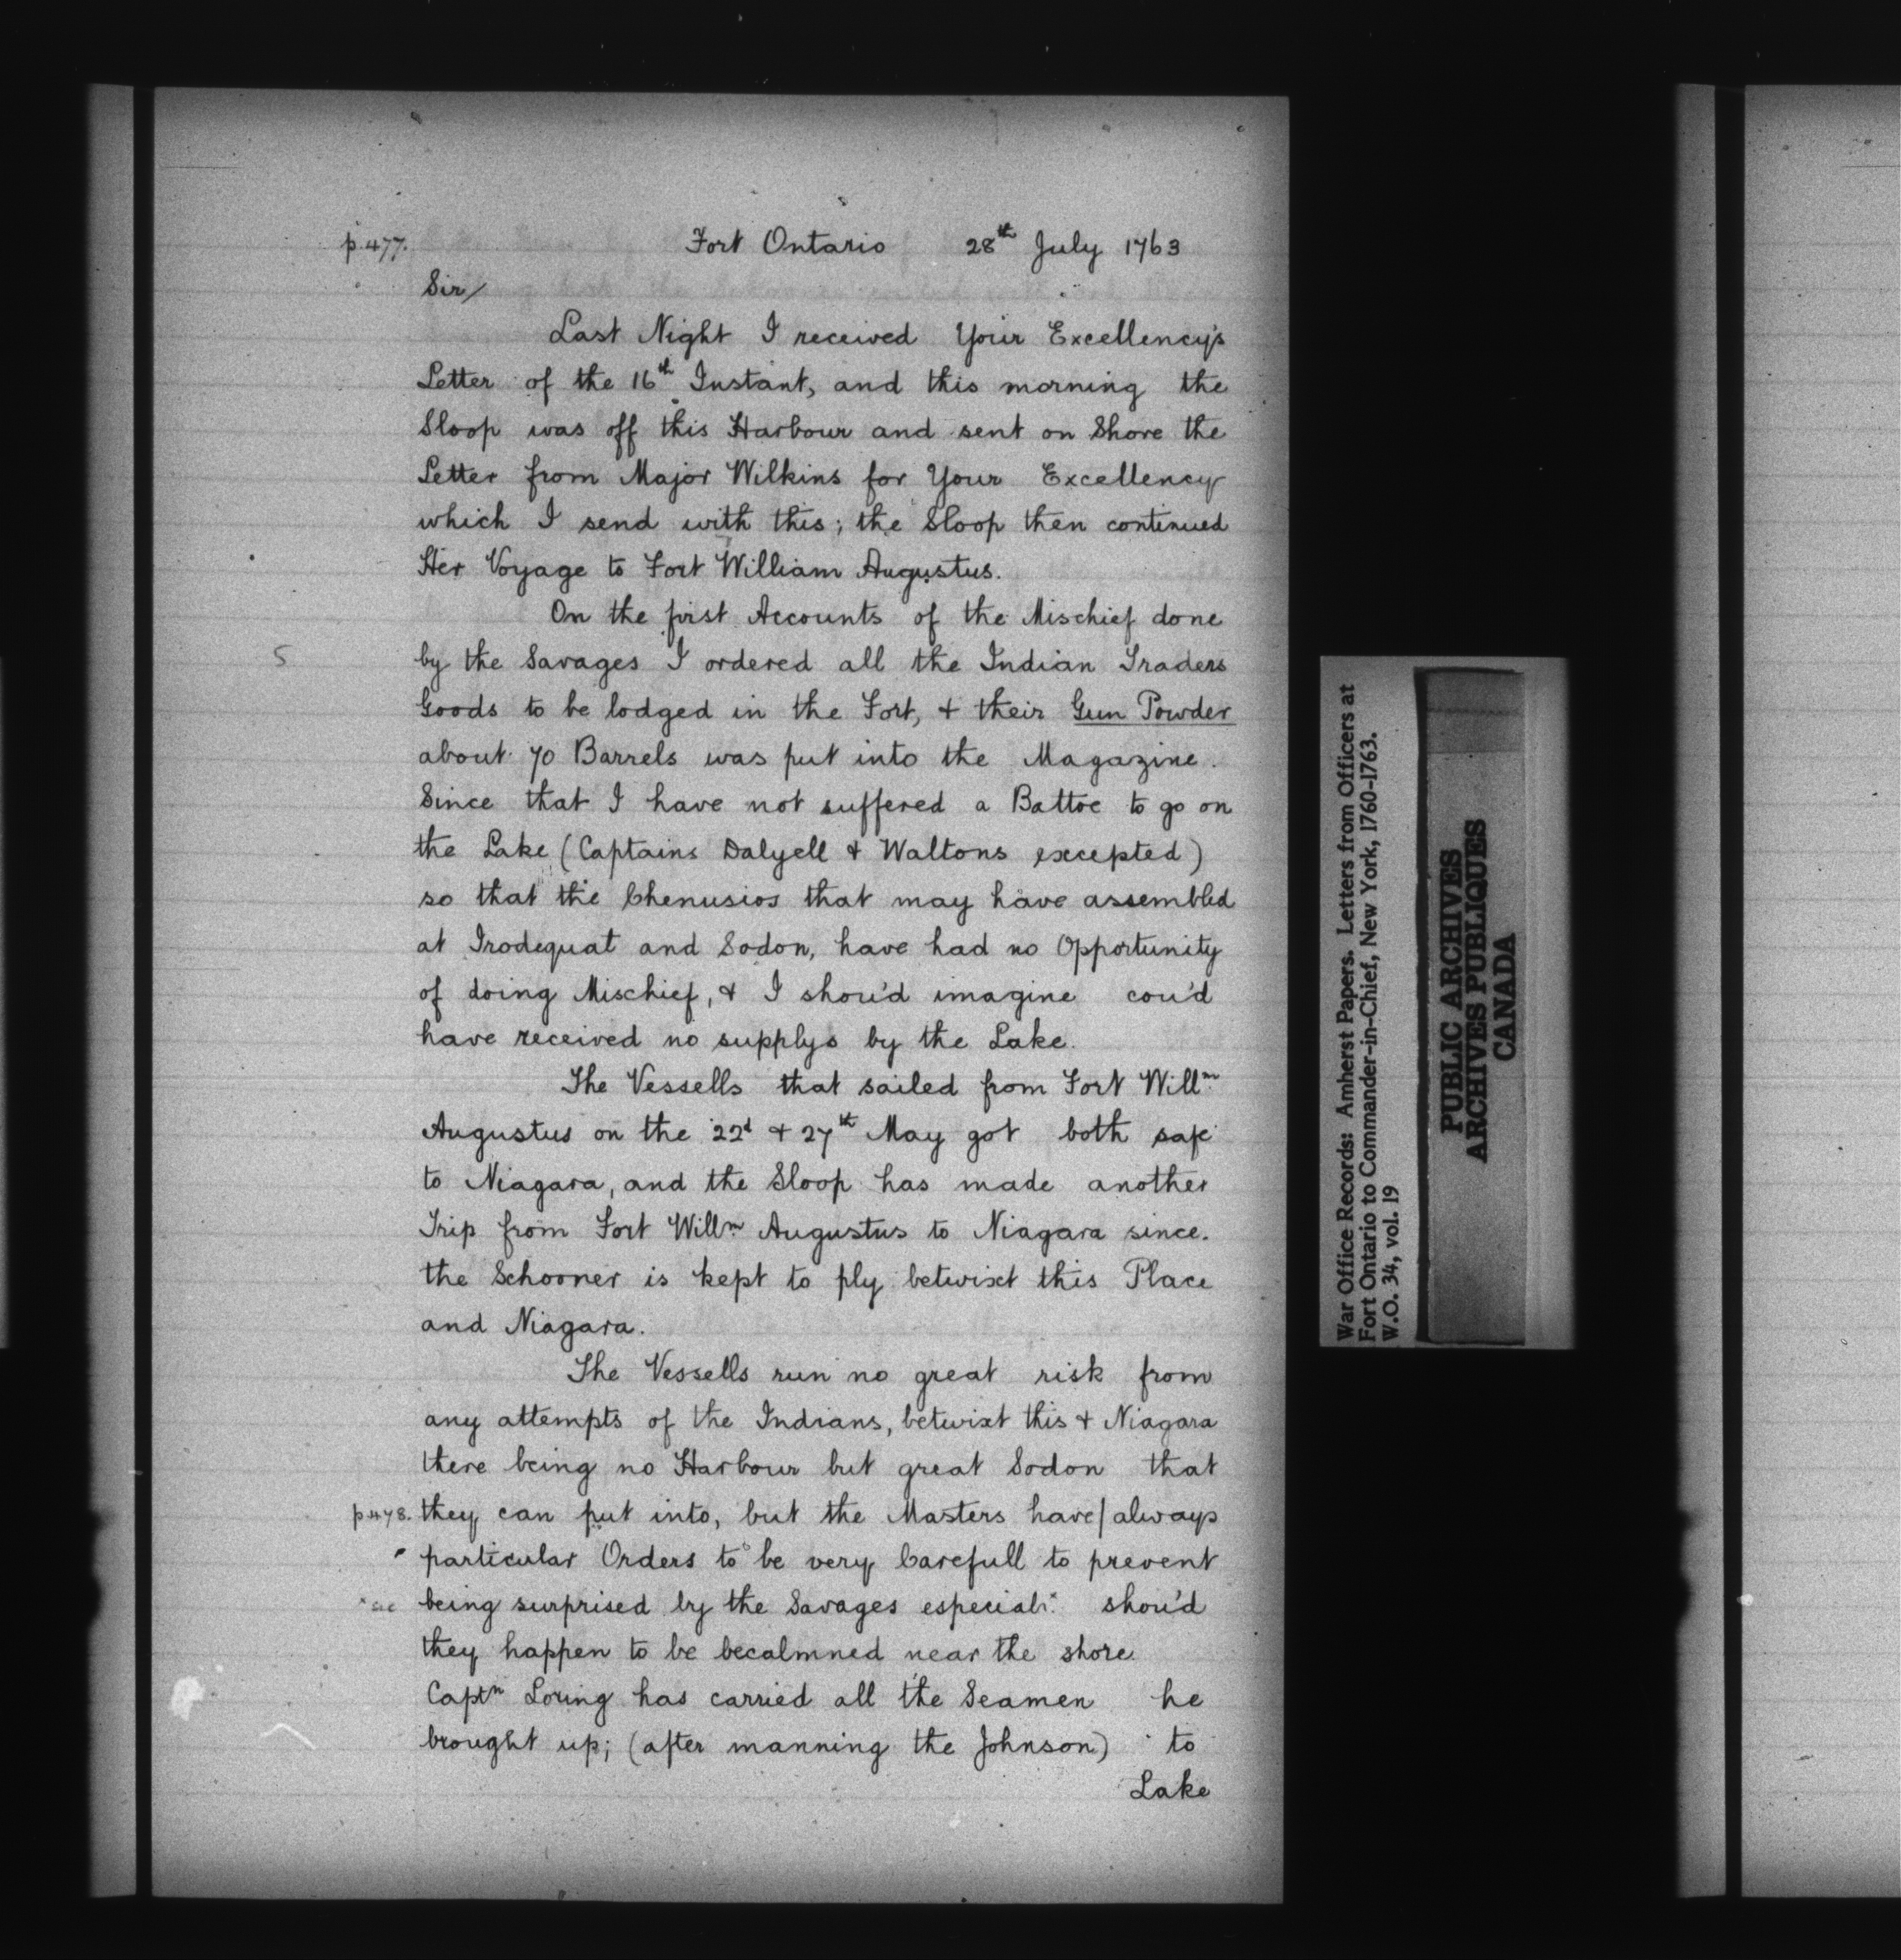 p.477. Fort Ontario 28th July 1763
Sir/
Last Night I received Your Excellency's
Letter of the 16th Instant, and this morning the
Sloop was off this Harbour and sent on Shore the
Letter from Major Wilkins for Your Excellency
which I send with this; the Sloop then continued
Her Voyage to Fort William Augustus.
On the first Accounts of the Mischief done
5
by the Savages I ordered all the Indian Traders
Goods to be lodged in the Fort, + their Gun Powder
about 70 Barrels was put into the Magazine.
Since that I have not suffered a Battoe to go on
the Lake (Captains Dalyell + Waltons excepted)
so that the Chenusios that may have assembled
at Irodequat and Sodon, have had no Opportunity
of doing Mischief, + I shou'd imagine cou'd
have received no supplys by the Lake.
The Vessells that sailed from Fort Willm
Augustus on the 22d + 27th May got both safe
to Niagara, and the Sloop has made another
Trip from Fort Willm Augustus to Niagara since.
the Schooner is kept to ply betwixt this Place
and Niagara.
The Vessells run no great risk from
any attempts of the Indians, betwixt this + Niagara
there being no Harbour but great Sodon that
p.478. they can put into, but the Masters have/always
particular Orders to be very Carefull to prevent
*sic being surprised by the Savages especial* shou'd
they happen to be becalmned near the shore.
Captn Loring has carried all the Seamen he
brought up; (after manning the Johnson) to
Lake
War Office Records: Amherst Papers. Letters from Officers at
Fort Ontario to Commander-in-Chief, New York, 1760-1763.
W.O. 34, vol. 19
PUBLIC ARCHIVES
ARCHIVES PUBLIQUES
CANADA